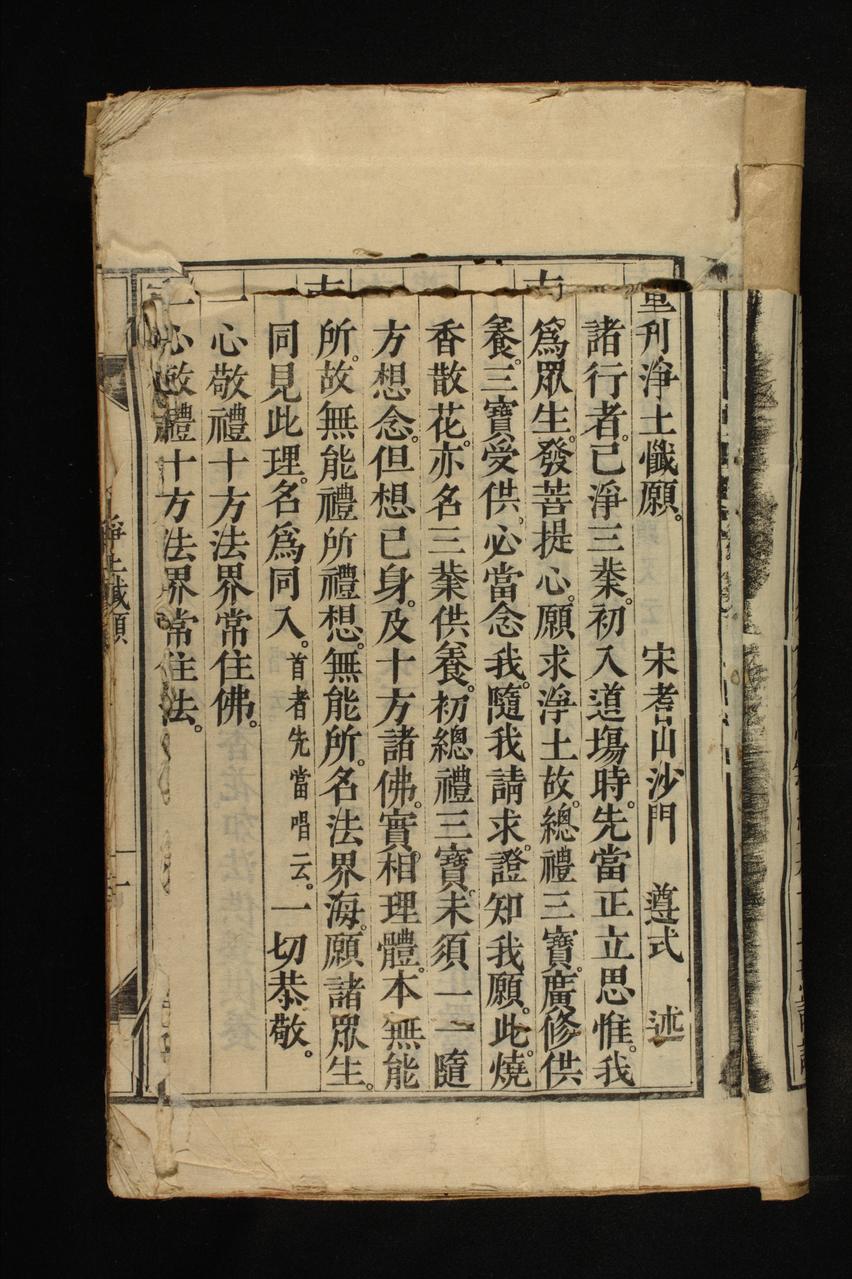 重刋淨土懺願。 宋耆山沙門 遵式 述
諸行者。已淨三業。初入道塲時。先當正立思惟。我
爲眾生。發菩提心。願求淨土故。總禮三寶。廣修供
養。三寶受供。必當念我。隨我請求。證知我願。此燒
香散花。亦名三業供養。初總禮三寶。未須一一隨
方想念。但想已身。及十方諸佛。實相理體。本無能
所。故無能禮所禮想。無能所。名法界海。願諸眾生。
同見此理。名爲同入。首者先當唱云。一切恭敬。
一心敬禮十方法界常住佛。
一心敬禮十方法界常住法。
淨土懺願